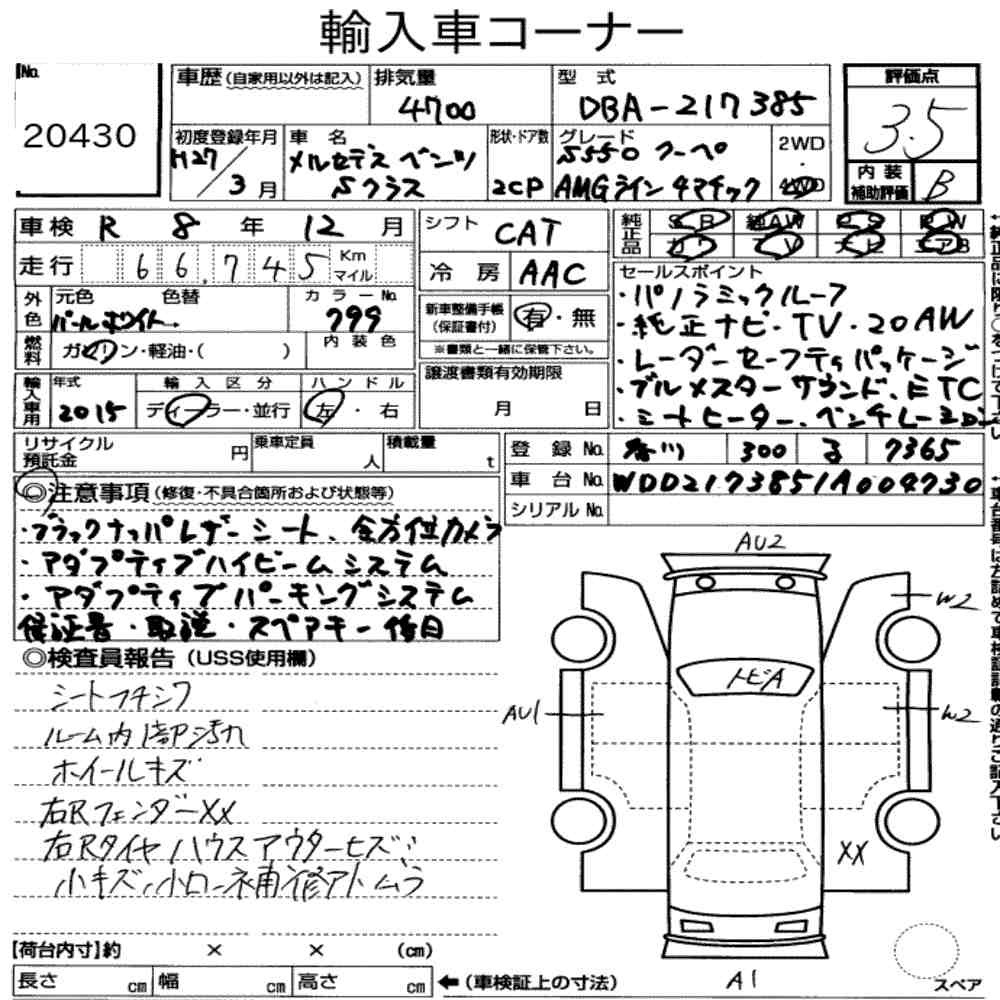 輸入車コーナー
No.
20430
車歴 (自家用以外は記入)
排気量
4700
型 式
DBA-217385
評価点
3.5
初度登録年月
H27/3月
車 名
メルセデス ベンツ
Sクラス
形状・ドア数
2CP
グレード
S550 クーペ
AMGライン 4マチック
2WD
・
4WD
内 装
補助評価
B
車検 R 8 年 12 月
走行 66,745 Km
マイル
シフト CAT
冷 房 AAC
純正品
SR 純AW PS PW
カワ TV ナビ エアB
外色
元色 色替
パールホワイト
カラーNo.
799
燃料
ガソリン・軽油・( )
内 装 色
新車整備手帳
(保証書付)
有・無
※書類と一緒に保管下さい。
セールスポイント
・パノラミックルーフ
・純正ナビ・TV・20AW
・レーダーセーフティパッケージ
・ブルメスターサウンド、ETC
・シートヒーター、ベンチレーター
輸入車用
年式
2015
輸 入 区 分
ディーラー・並行
ハ ン ド ル
左・右
譲渡書類有効期限
月 日
リサイクル
預託金
円
乗車定員
人
積載量
t
登 録 No. 香川 300 る 7365
車 台 No. WDD2173851A004730
シリアル No.
◎注意事項(修復・不具合箇所および状態等)
・ブラックナッパレザーシート、全方位カメラ
・アダプティブハイビームシステム
・アダプティブパーキングシステム
保証書・取説・スペアキー後日
◎検査員報告(USS使用欄)
シートフチシワ
ルーム内1部汚れ
ホイールキズ
右RフェンダーXX
右Rタイヤハウスアウターヒズミ
小キズ、小ローネ補修アトムラ
AU2
W2
トビA
AU1
W2
XX
A1
スペア
【荷台内寸】約 × × (cm)
長さ cm 幅 cm 高さ cm ←(車検証上の寸法)